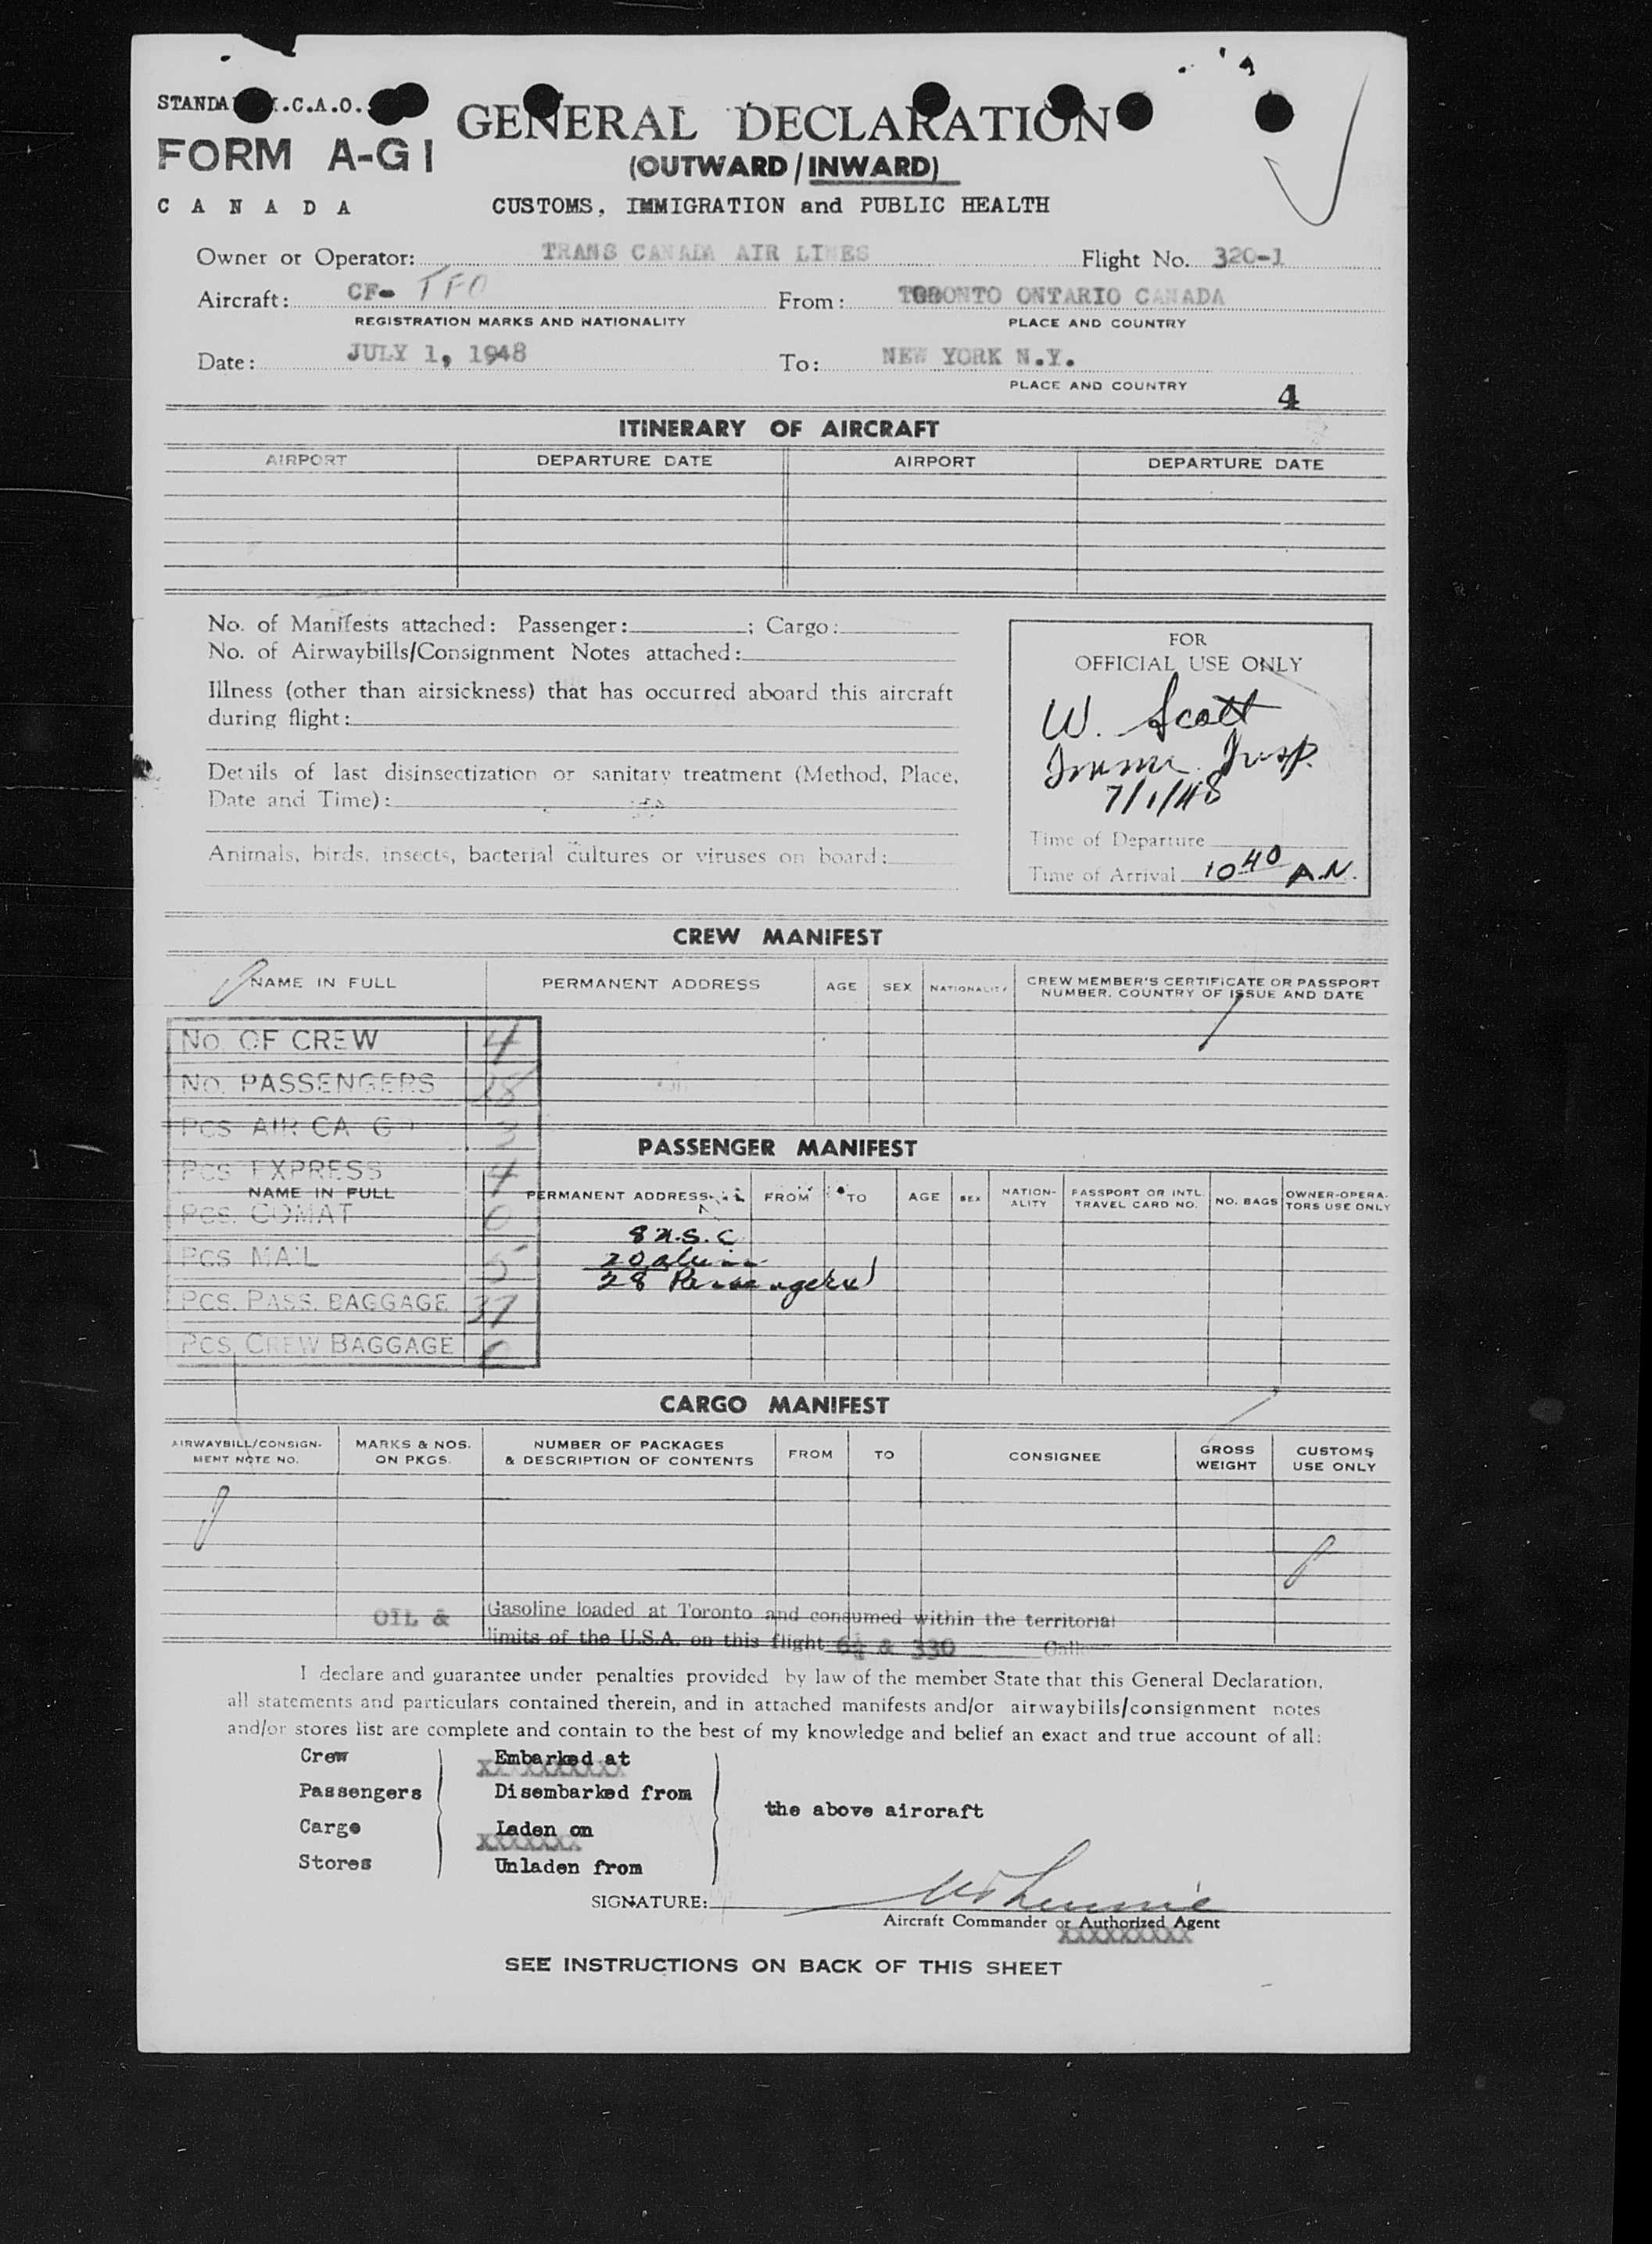 STANDA .C.A.O.
FORM A-G1
CANADA
GENERAL DECLARATION
(OUTWARD/INWARD)
CUSTOMS, IMMIGRATION and PUBLIC HEALTH
Owner or Operator: TRANS CANADA AIR LINES Flight No. 320-1
Aircraft: CF- TFO From: TORONTO ONTARIO CANADA
REGISTRATION MARKS AND NATIONALITY PLACE AND COUNTRY
Date: JULY 1, 1948 To: NEW YORK N.Y.
PLACE AND COUNTRY
4
ITINERARY OF AIRCRAFT
AIRPORT DEPARTURE DATE AIRPORT DEPARTURE DATE
No. of Manifests attached: Passenger: ; Cargo:
No. of Airwaybills/Consignment Notes attached:
Illness (other than airsickness) that has occurred aboard this aircraft
during flight:
Details of last disinsectization or sanitary treatment (Method, Place,
Date and Time):
Animals, birds, insects, bacterial cultures or viruses on board:
FOR
OFFICIAL USE ONLY
W. Scott
Imm. Insp.
7/1/48
Time of Departure
Time of Arrival 10 40 A.M.
CREW MANIFEST
NAME IN FULL PERMANENT ADDRESS AGE SEX NATIONALITY CREW MEMBER'S CERTIFICATE OR PASSPORT
NUMBER, COUNTRY OF ISSUE AND DATE
No. OF CREW 4
No. PASSENGERS 28
Pcs AIR CA G
Pcs. EXPRESS 4
Pcs. COMAT 0
Pcs MAIL 5
Pcs. PASS. BAGGAGE 37
Pcs. CREW BAGGAGE 0
PASSENGER MANIFEST
NAME IN FULL PERMANENT ADDRESS FROM TO AGE SEX NATION-
ALITY PASSPORT OR INTL.
TRAVEL CARD NO. NO. BAGS OWNER-OPERA-
TORS USE ONLY
8 U.S.C
20 aliens
28 Passengers
CARGO MANIFEST
AIRWAYBILL/CONSIGN-
MENT NOTE NO. MARKS & NOS.
ON PKGS. NUMBER OF PACKAGES
& DESCRIPTION OF CONTENTS FROM TO CONSIGNEE GROSS
WEIGHT CUSTOMS
USE ONLY
OIL & Gasoline loaded at Toronto and consumed within the territorial
limits of the U.S.A. on this flight & 330
I declare and guarantee under penalties provided by law of the member State that this General Declaration,
all statements and particulars contained therein, and in attached manifests and/or airwaybills/consignment notes
and/or stores list are complete and contain to the best of my knowledge and belief an exact and true account of all:
Crew Embarked at
Passengers Disembarked from
the above aircraft
Cargo Laden on
Stores Unladen from
SIGNATURE:
Aircraft Commander or Authorized Agent
XXXXXXXXX
SEE INSTRUCTIONS ON BACK OF THIS SHEET